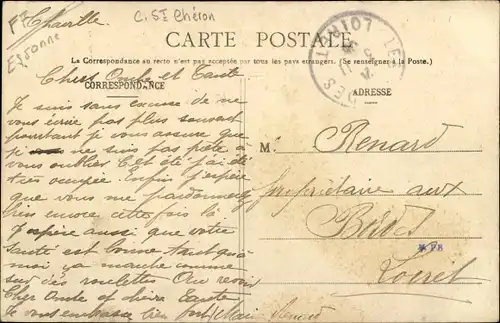 Chaville.
C. St Chéron
Essonne
CARTE POSTALE
La Correspondance au recto n'est pas acceptée par tous les pays étrangers. (Se renseigner à la Poste.)
CORRESPONDANCE
ADRESSE
LOIRET
Chers Oncle et Tante
Je suis sans excuse de ne
vous écrire pas plus souvent
pourtant je vous assure que
je ne suis pas prête à
vous oublier Cet été j'ai été
très occupée. Enfin j'espère
que vous me pardonnerez
bien encore cette fois là
J'espère aussi que votre
santé est bonne tant qu'à
moi ça marche comme
sur des roulettes Au revoir
Cher Oncle et chère Tante
Je vous embrasse bien fort
M. Renard
propriétaire aux
Loiret